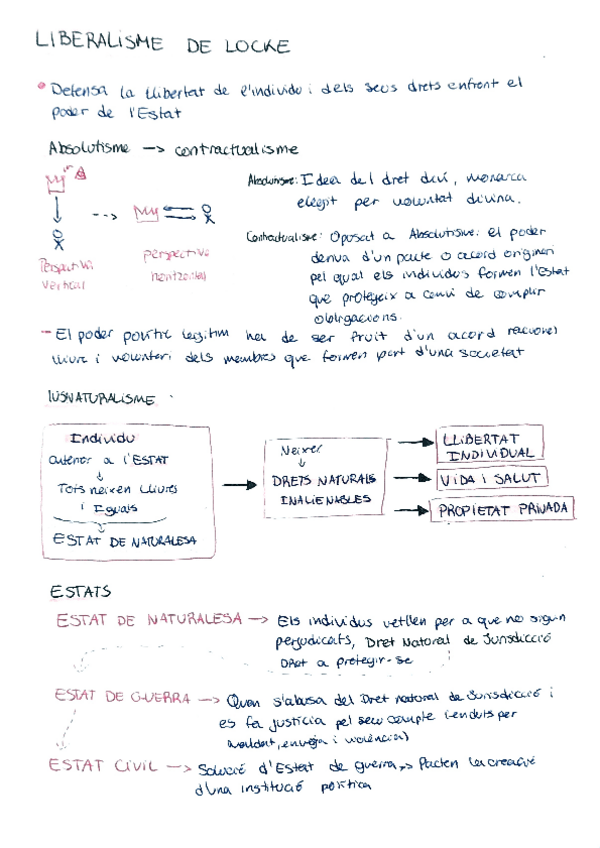 LIBERALISME DE LOCKE
• Defensa la llibertat de l'individu i dels seus drets enfront el
poder de l'Estat
Absolutisme -> contractualisme
Absolutisme: Idea del dret diví, monarca
elegit per voluntat divina.
Perspectiva
vertical
perspectiva
horitzontal
Contractualisme: Oposat a Absolutisme: el poder
deriva d'un pacte o acord originari
pel qual els individus formen l'Estat
que protegeix a canvi de complir
obligacions.
- El poder polític legítim ha de ser fruit d'un acord racional
lliure i voluntari dels membres que formen part d'una societat
IUSNATURALISME
Individu
anterior a l'ESTAT
↓
Tots neixen lliures
i Iguals
ESTAT DE NATURALESA
Neixer
↓
DRETS NATURALS
INALIENABLES
LLIBERTAT
INDIVIDUAL
VIDA I SALUT
PROPIETAT PRIVADA
ESTATS
ESTAT DE NATURALESA -> Els individus vetllen per a que no sigun
perjudicats, Dret Natural de Jurisdicció
Dret a protegir-se
ESTAT DE GUERRA -> Quan s'abusa del Dret natural de Jurisdicció i
es fa justícia pel seu compte (enduts per
maldat, enveja i violència)
ESTAT CIVIL -> Solució d'Estat de guerra, -> Pacten la creació
d'una institució política